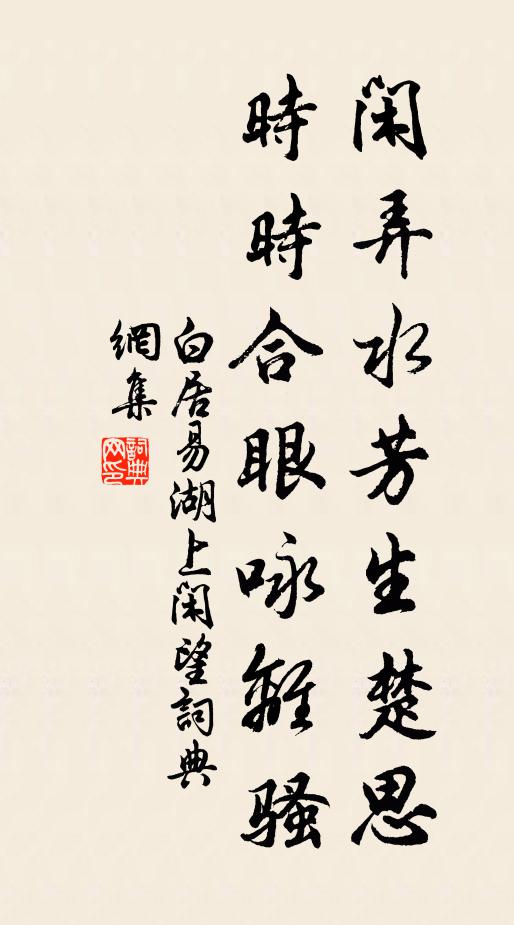 闲弄水芳生楚思
時時合眼咏離騷
白居易湖上闲望詞典
網集
詞典網印